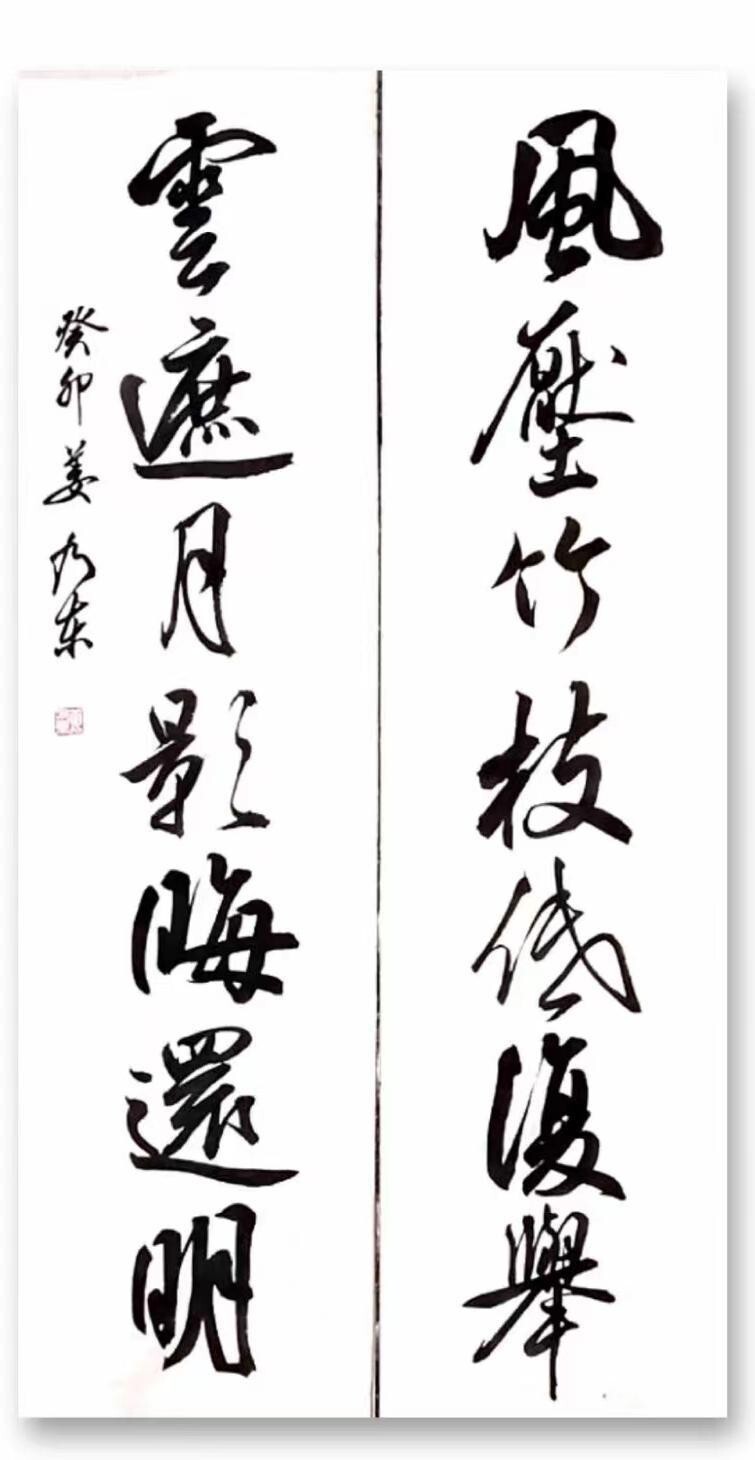 風壓竹枝低復舉
雲遮月影晦還明
癸卯姜乃东